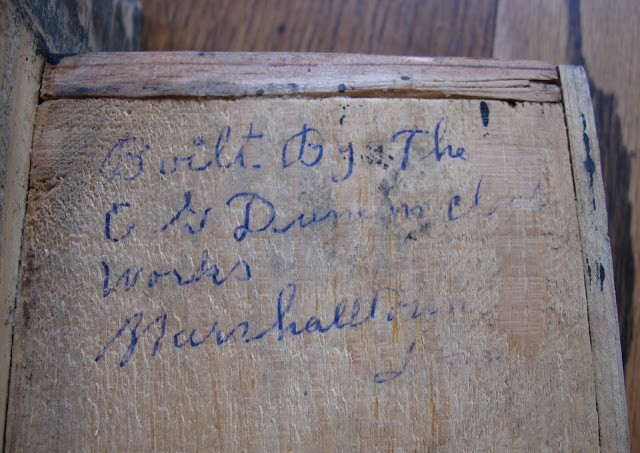 Built By The
C W Clock
Works
Marshalltown
Iowa